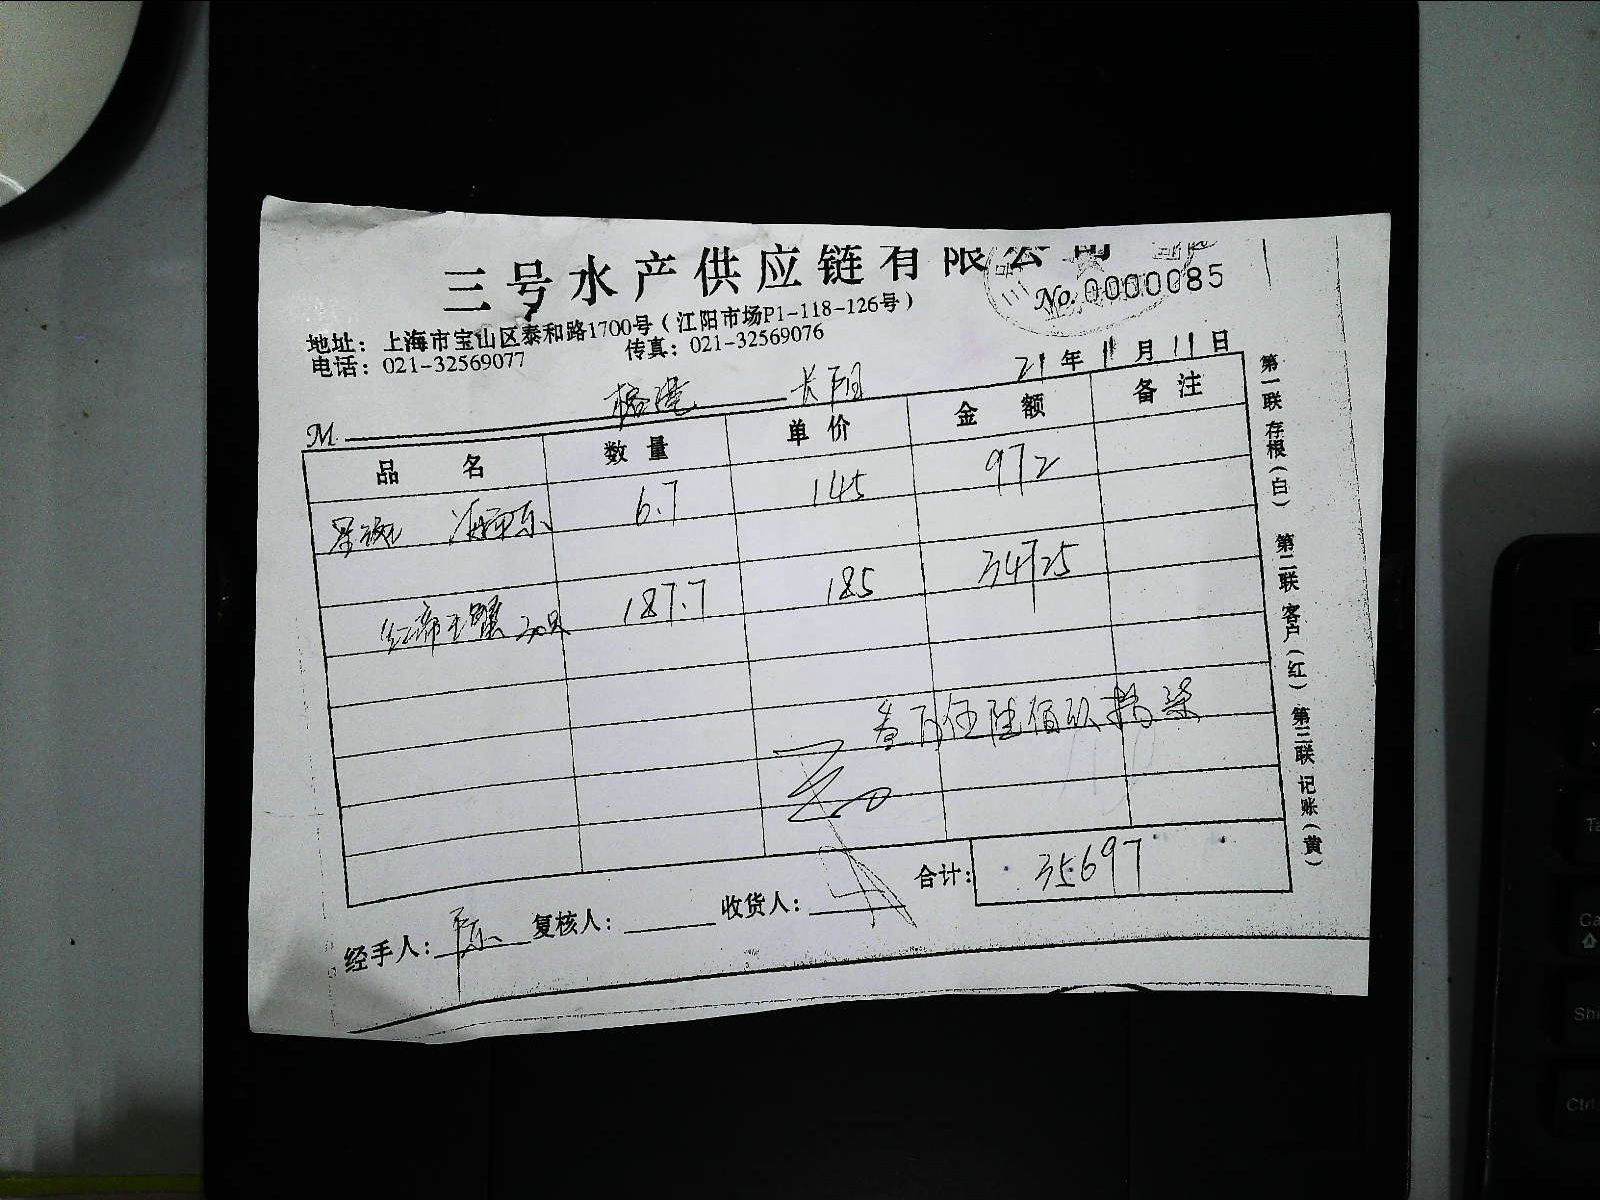 三号水产供应链有限公司
No. 0000085
地址：上海市宝山区泰和路1700号（江阳市场P1-118-126号）
电话：021-32569077 传真：021-32569076
21年11月11日
M 榕港 长阳
品名 数量 单价 金额 备注
6.7 145 972
红帝王蟹 30只 187.7 185 34725
叁万伍陆佰玖拾柒
合计： 35697
经手人： 复核人： 收货人：
第一联 存根（白） 第二联 客户（红） 第三联 记账（黄）